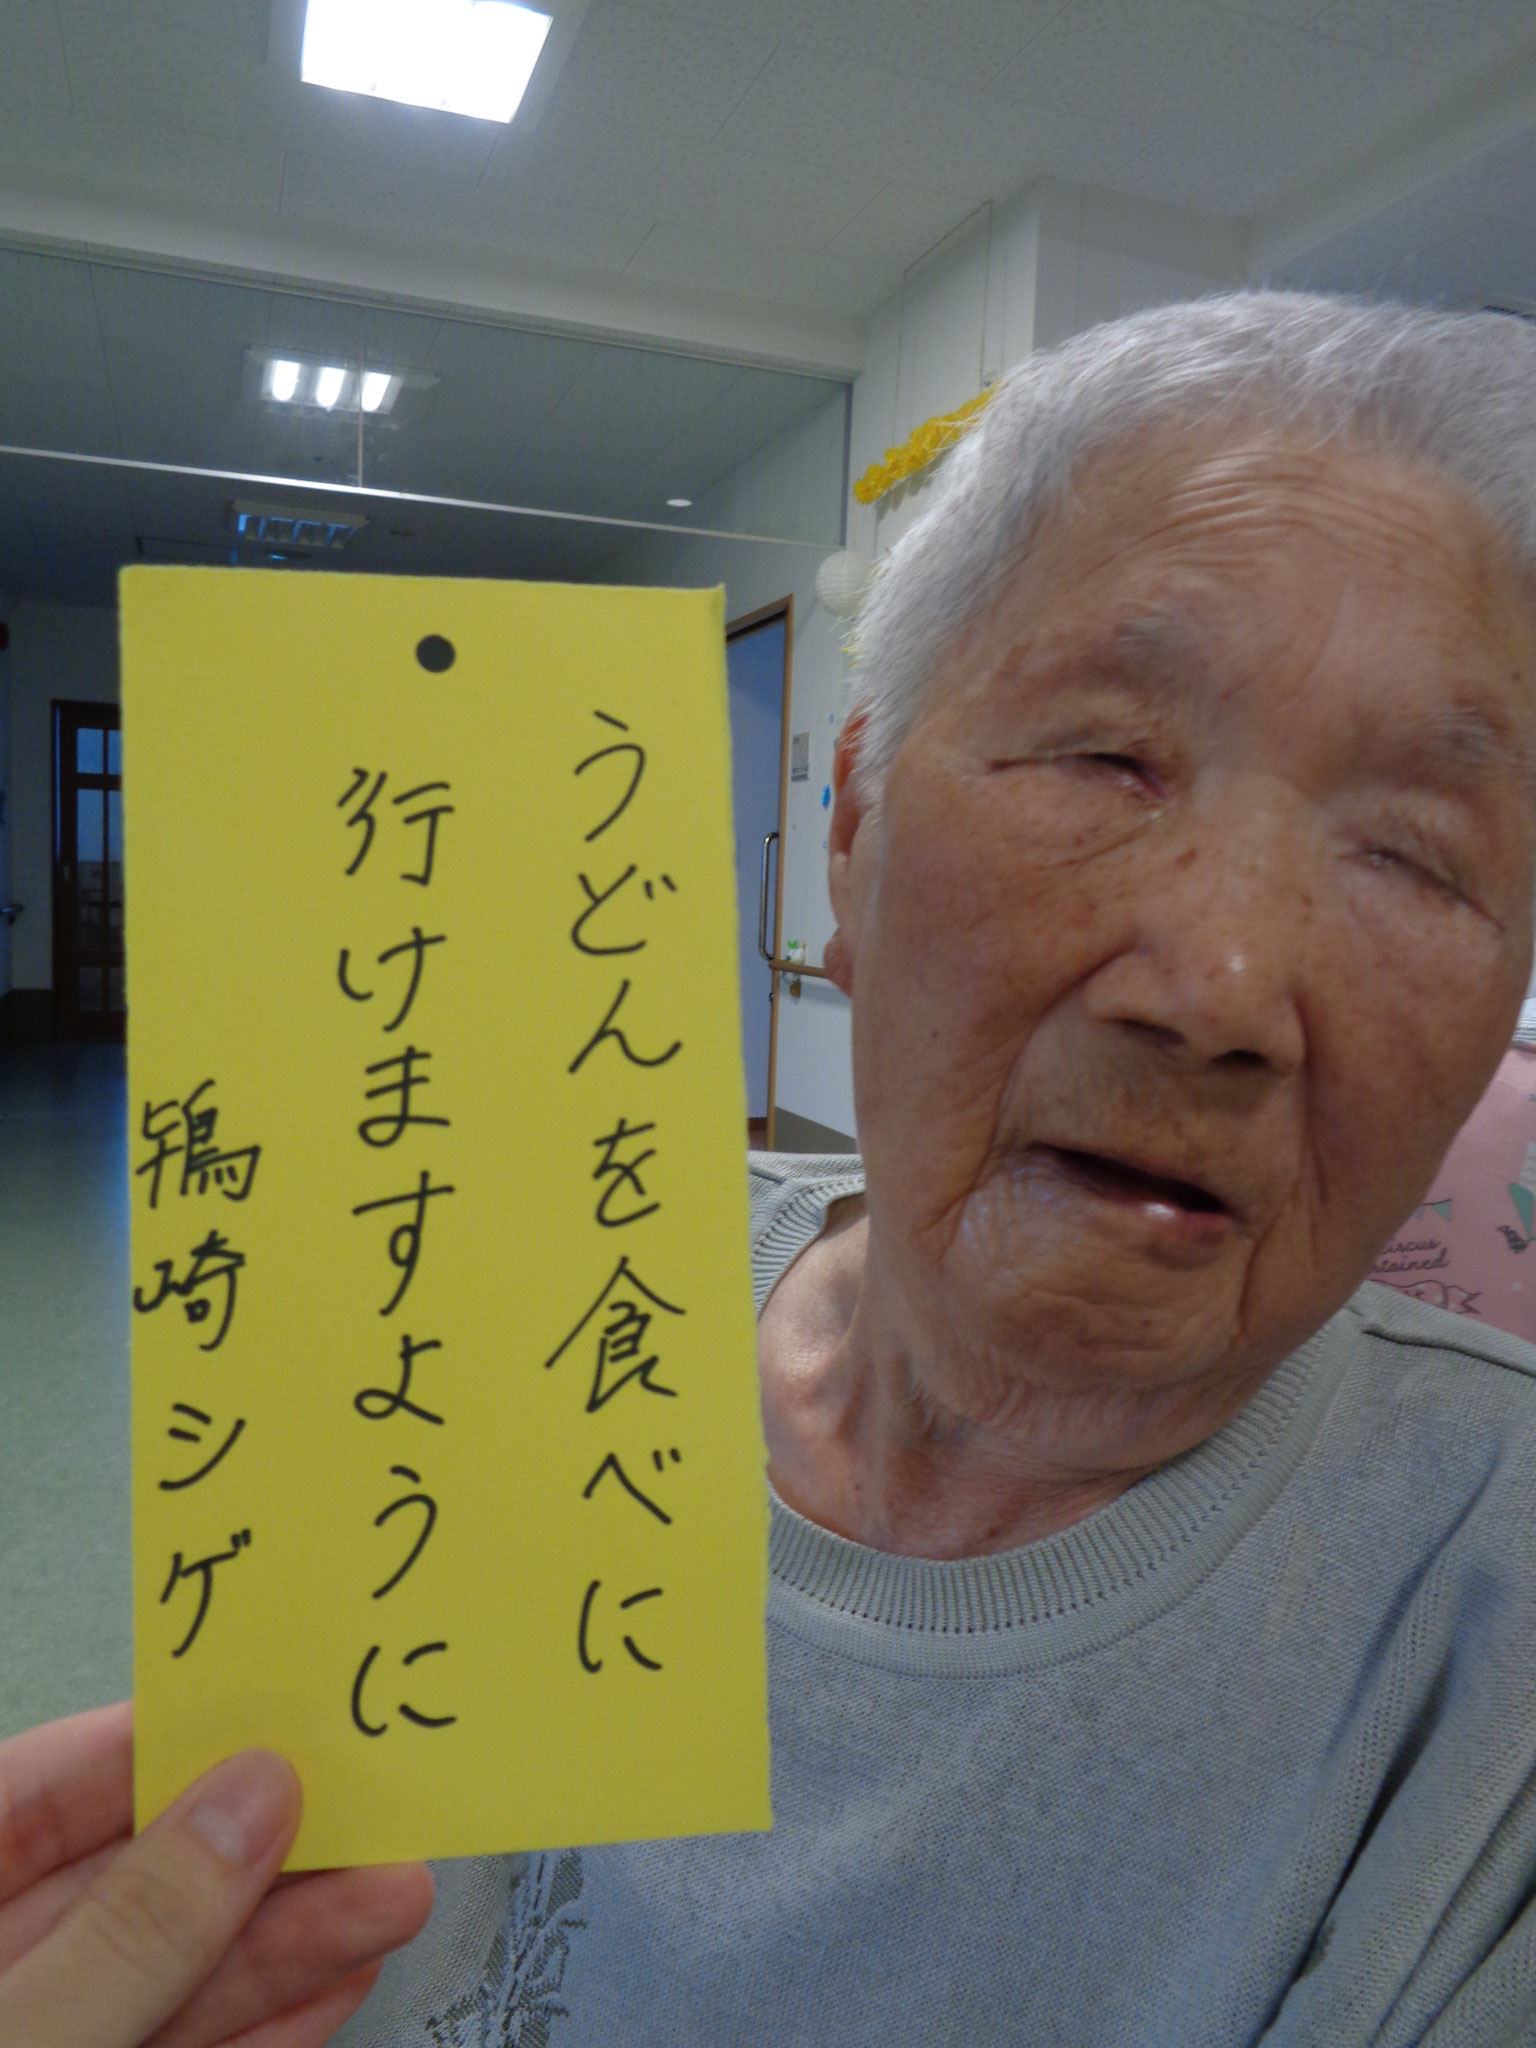 うどんを食べに
行けますように
鴇崎シゲ
circus